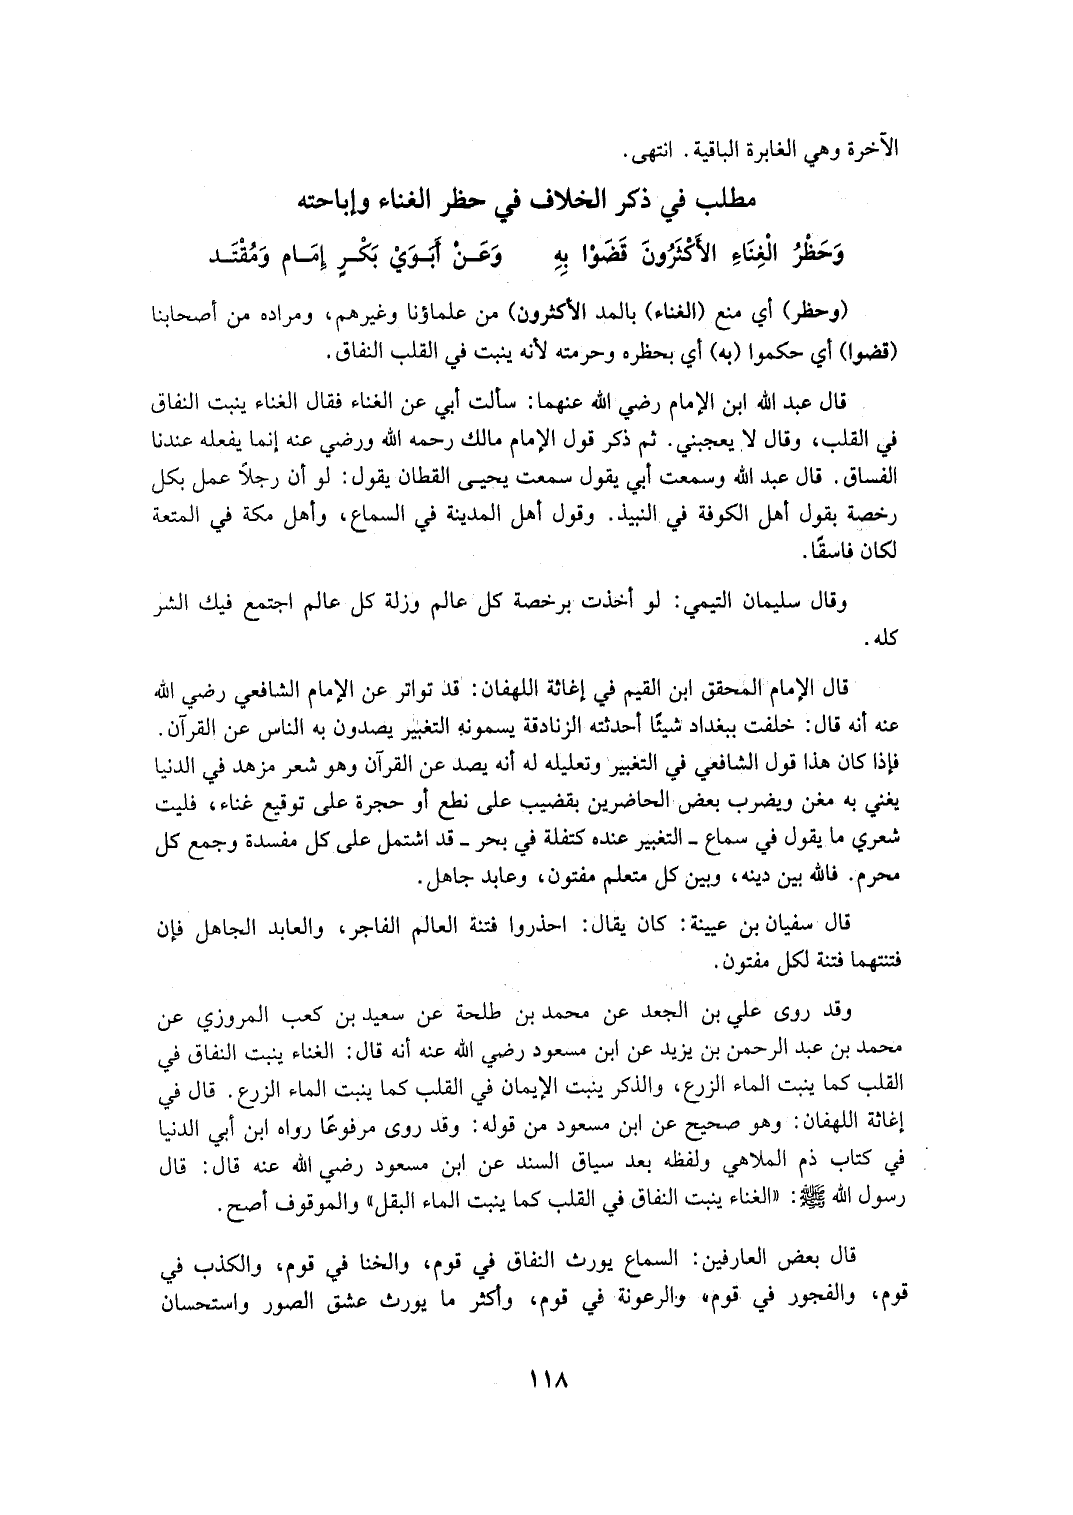 الآخرة وهي الغابرة الباقية. انتهى.
مطلب في ذكر الخلاف في حظر الغناء وإباحته
وَحَظْرُ الْغِنَاءِ الأَكْثَرُونَ قَضَوْا بِهِ وَعَنْ أَبَوَيْ بَكْرٍ إِمَامٍ وَمُقْتَدِ
(وحظر) أي منع (الغناء) بالمد الأكثرون) من علماؤنا وغيرهم، ومراده من أصحابنا
(قضوا) أي حكموا (به) أي بحظره وحرمته لأنه ينبت في القلب النفاق.
قال عبد الله ابن الإمام رضي الله عنهما: سألت أبي عن الغناء فقال الغناء ينبت النفاق
في القلب، وقال لا يعجبني. ثم ذكر قول الإمام مالك رحمه الله ورضي عنه إنما يفعله عندنا
الفساق. قال عبد الله وسمعت أبي يقول سمعت يحيى القطان يقول: لو أن رجلاً عمل بكل
رخصة بقول أهل الكوفة في النبيذ. وقول أهل المدينة في السماع، وأهل مكة في المتعة
لكان فاسقًا.
وقال سليمان التيمي: لو أخذت برخصة كل عالم وزلة كل عالم اجتمع فيك الشر
كله.
قال الإمام المحقق ابن القيم في إغاثة اللهفان: قد تواتر عن الإمام الشافعي رضي الله
عنه أنه قال: خلفت ببغداد شيئًا أحدثته الزنادقة يسمونه التغبير يصدون به الناس عن القرآن.
فإذا كان هذا قول الشافعي في التغبير وتعليله له أنه يصد عن القرآن وهو شعر مزهد في الدنيا
يغني به مغن ويضرب بعض الحاضرين بقضيب على نطع أو حجرة على توقيع غناء، فليت
شعري ما يقول في سماع ـ التغبير عنده كتفلة في بحر ـ قد اشتمل على كل مفسدة وجمع كل
محرم. فالله بين دينه، وبين كل متعلم مفتون، وعابد جاهل.
قال سفيان بن عيينة: كان يقال: احذروا فتنة العالم الفاجر، والعابد الجاهل فإن
فتنتهما فتنة لكل مفتون.
وقد روى علي بن الجعد عن محمد بن طلحة عن سعيد بن كعب المروزي عن
محمد بن عبد الرحمن بن يزيد عن ابن مسعود رضي الله عنه أنه قال: الغناء ينبت النفاق في
القلب كما ينبت الماء الزرع، والذكر ينبت الإيمان في القلب كما ينبت الماء الزرع. قال في
إغاثة اللهفان: وهو صحيح عن ابن مسعود من قوله: وقد روى مرفوعًا رواه ابن أبي الدنيا
في كتاب ذم الملاهي ولفظه بعد سياق السند عن ابن مسعود رضي الله عنه قال: قال
رسول الله ﷺ: «الغناء ينبت النفاق في القلب كما ينبت الماء البقل» والموقوف أصح.
قال بعض العارفين: السماع يورث النفاق في قوم، والخنا في قوم، والكذب في
قوم، والفجور في قوم، والرعونة في قوم، وأكثر ما يورث عشق الصور واستحسان
١١٨